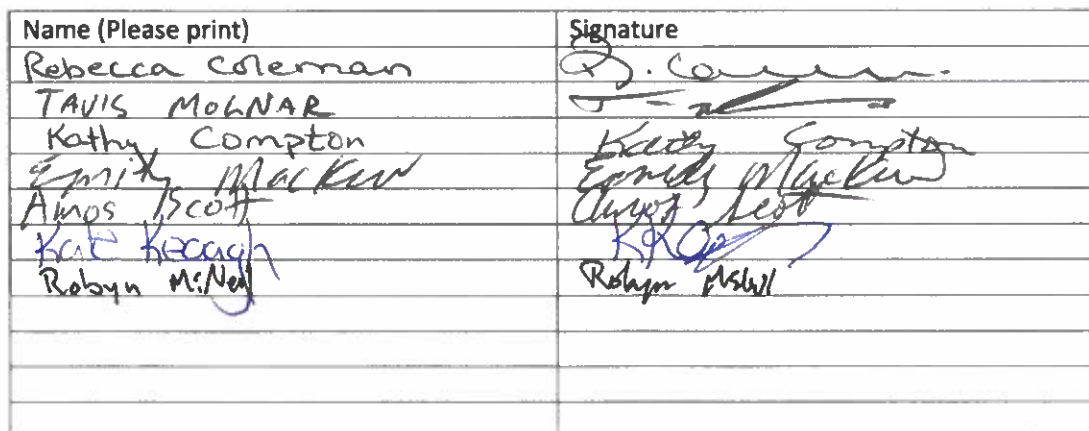 Name (Please print) Signature
Rebecca Coleman B. Co
TAVIS MOLNAR
Kathy Compton Kathy Compton
Emily MacKinn Emily MacKinn
Amos Scott Amos Scott
Kate Keough KK
Robyn McNeil Robyn McNeil